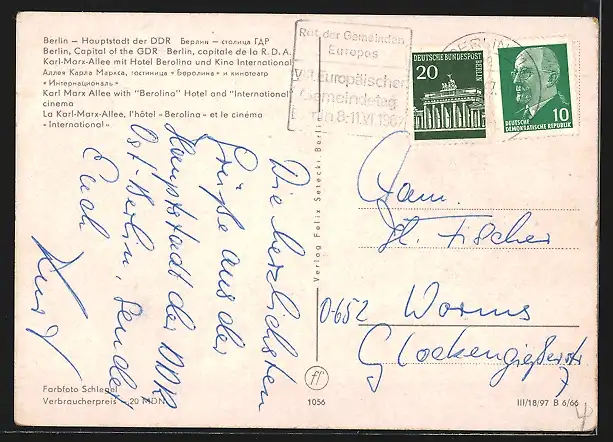 Berlin – Hauptstadt der DDR Берлин – столица ГДР
Berlin, Capital of the GDR Berlin, capitale de la R.D.A.
Karl-Marx-Allee mit Hotel Berolina und Kino International
Аллея Карла Маркса, гостиница «Беролина» и кинотеатр
«Интернациональ»
Karl Marx Allee with "Berolina" Hotel and "International"
cinema
La Karl-Marx-Allee, l'hôtel «Berolina» et le cinéma
«International»
Rat der Gemeinden
Europas
VII. Europäischer
Gemeindetag
8.-11.VI.1967
BERLIN
DEUTSCHE BUNDESPOST
BERLIN
20
10
DEUTSCHE
DEMOKRATISCHE REPUBLIK
Die herzlichsten
Grüße aus der
Hauptstadt der DDR
Ost-Berlin, sendet
Euch
Kurt
Verlag Felix Setecki, Berlin
Fam.
H. Fischer
D-652 Worms
Glockengießerstr
7
Farbfoto Schlegel
Verbraucherpreis –,20 MDN
1056
III/18/97 B 6/66